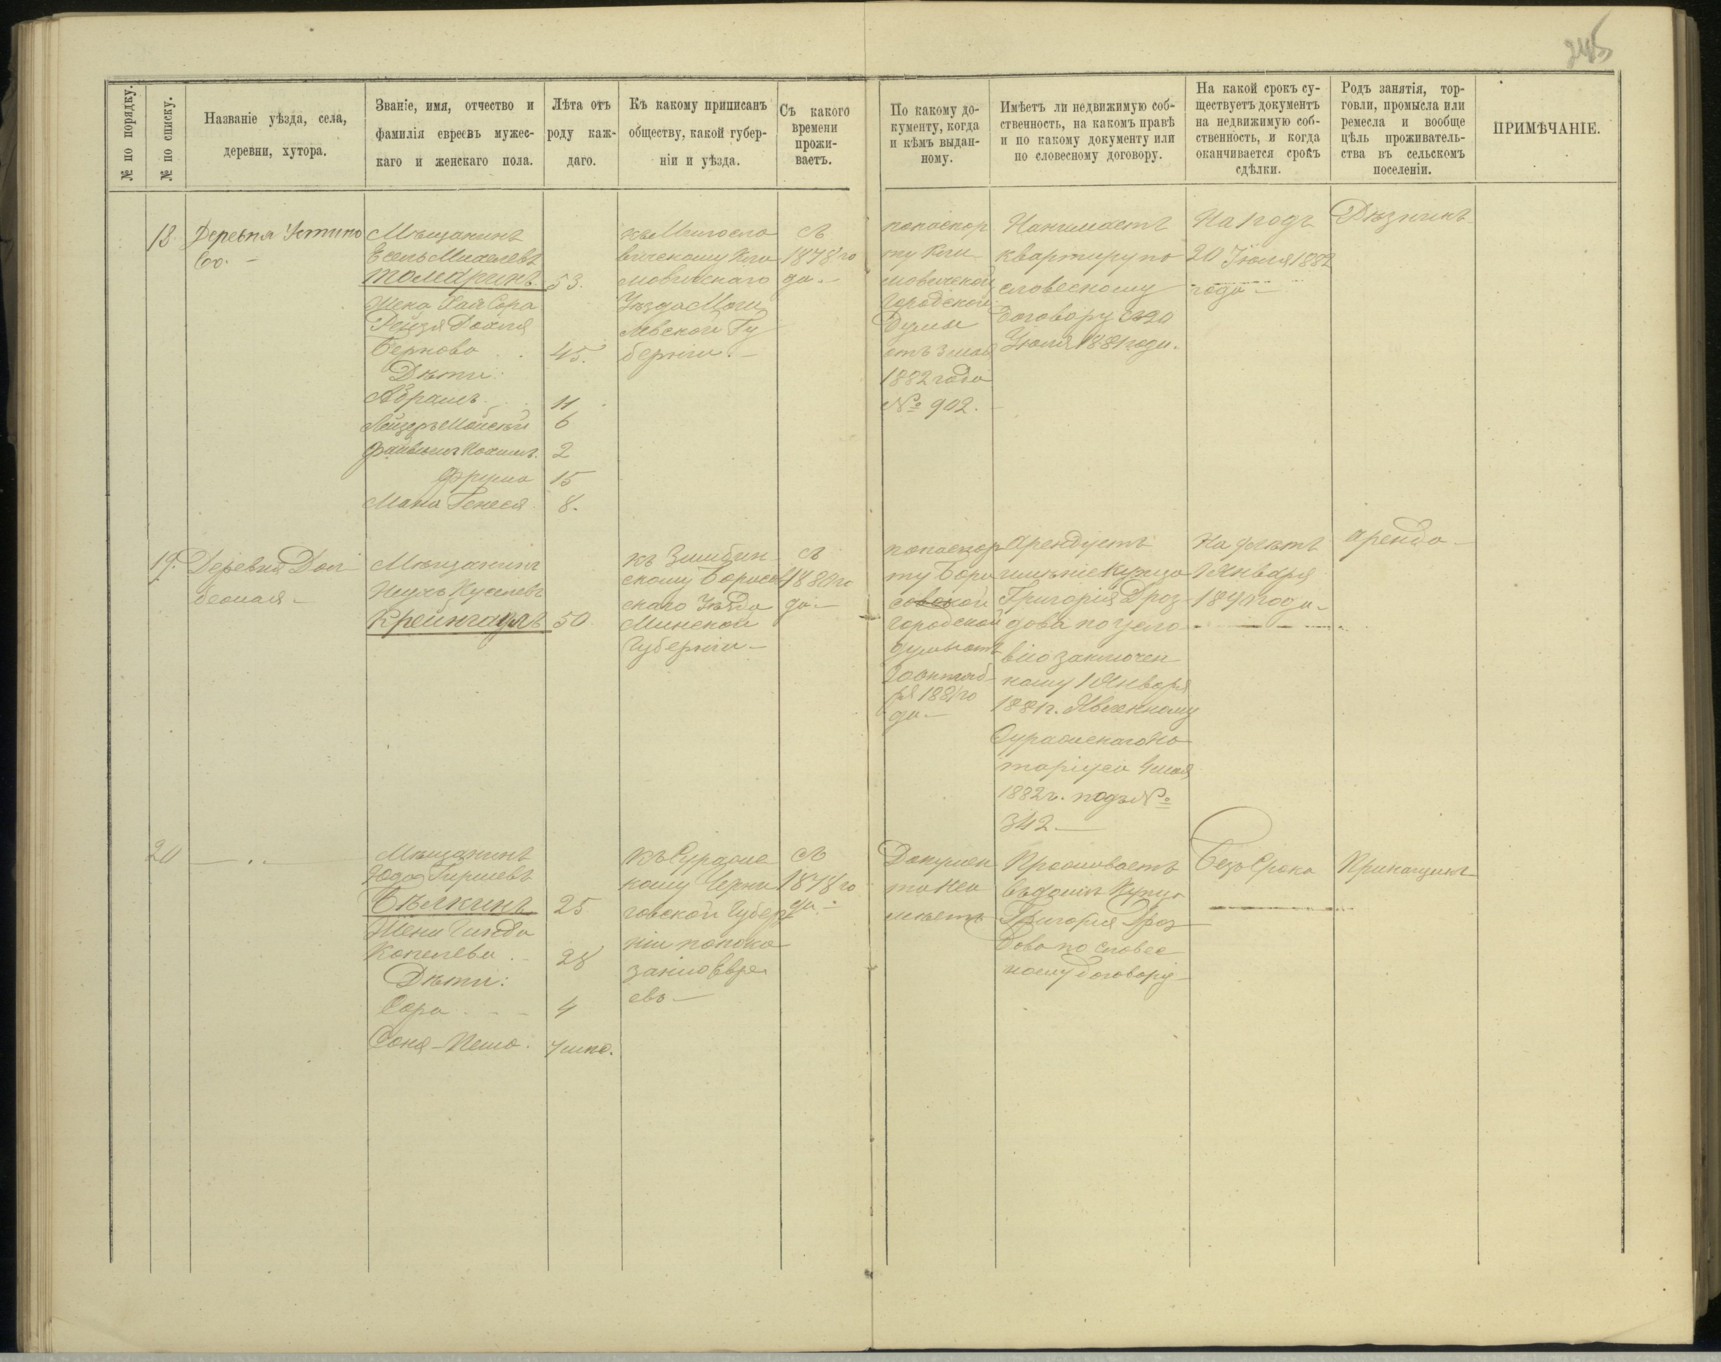 245
№ по порядку.
№ по списку.
Названіе уѣзда, села,
деревни, хутора.
Званіе, имя, отчество и
фамилія евреевъ мужес-
каго и женскаго пола.
Лѣта отъ
роду каж-
даго.
Къ какому приписанъ
обществу, какой губер-
ніи и уѣзда.
Съ какого
времени
прожи-
ваетъ.
По какому до-
кументу, когда
и кѣмъ выдан-
ному.
Имѣетъ ли недвижимую соб-
ственность, на какомъ правѣ
и по какому документу или
по словесному договору.
На какой срокъ су-
ществуетъ документъ
на недвижимую соб-
ственность, и когда
оканчивается срокъ
сдѣлки.
Родъ занятія, тор-
говли, промысла или
ремесла и вообще
цѣль проживатель-
ства въ сельскомъ
поселеніи.
ПРИМѢЧАНІЕ.
18
Деревня Устино
во. —
Мѣщанинъ
53.
Жена Хая Сора
Беркова
45.
Дѣти:
Абрамъ
11
6
2
Фрума
15
8.
вѣческому Кли
мовичскаго
Уѣзда Моги
левской Гу
берніи. —
съ
1878 го
да. —
паспор
ту Кли
мовичской
Городской
Думы
отъ 3 мая
1882 года
№ 902. —
Нанимаетъ
квартиру по
словесному
договору съ 20
Іюля 1881 года.
На 1 годъ
20 Іюля 1882
года —
19.
Деревня
Мѣщанинъ
Крейнгаузъ
50
скому Борисов
скаго Уѣзда
Минской
Губерніи —
съ
188 го
да —
ту Бори
совской
Городской
Думы отъ
октяб
ря 1881 го
да —
Арендуетъ
имѣніе Купца
Григорія Дроз
дова по усло
вію заключен
ному 1 Января
1881 г. Явленному
Суражскаго но
таріуса 4 мая
1882 г. подъ №
342 —
лѣтъ
1 Января
года —
аренда —
20
— . . —
Мѣщанинъ
Юда Гиршевъ
Бѣлкинъ
25
Копелева
28
Дѣти:
Сора - - -
4
Соня-Песя.
къ Сураж
кому Черни
говской Губер
ніи по пока
занію Евре
евъ —
съ
1878 го
да —
Докумен
та не и
мѣетъ
Проживаетъ
въ домѣ Купца
Григорія Дроз
дова по словес
ному договору
Безъ Срока
Прикащикъ